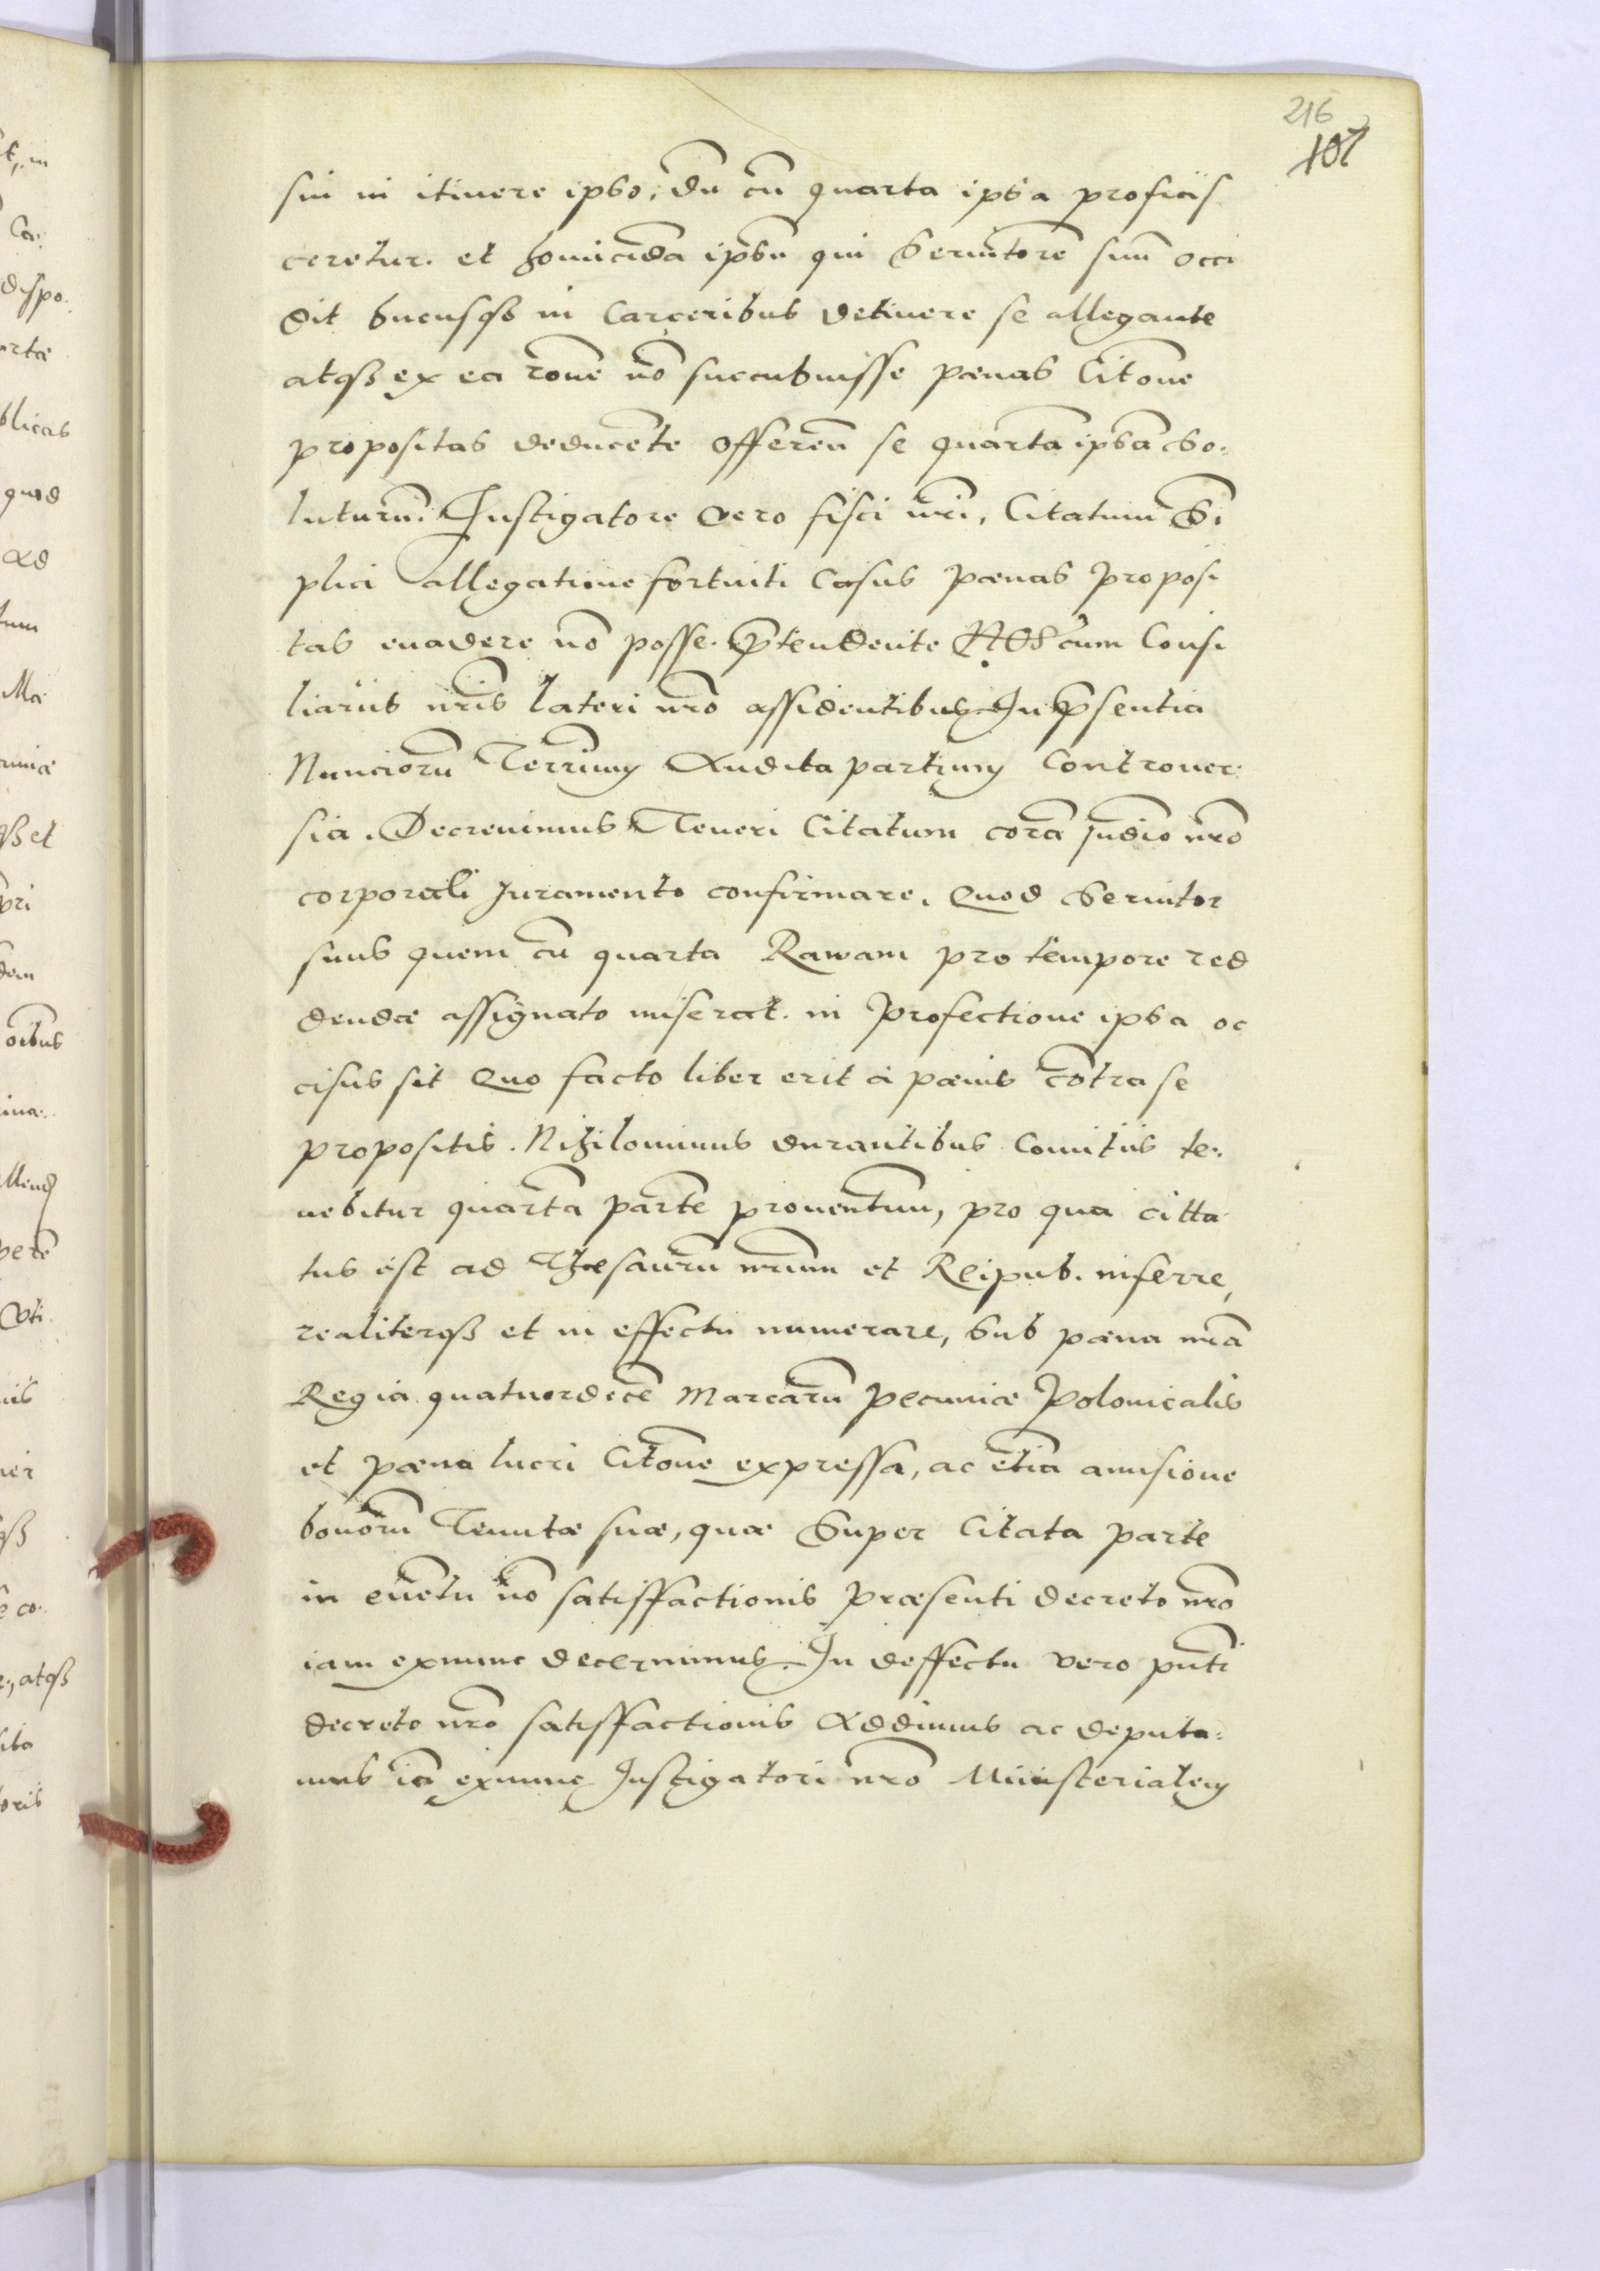 216
107
sui in itinere ipso, dū cū quarta ipsa proficis
ceretur. et homicidā ipsū qui Seruitorē suū occi
dit hucusqꝫ in Carceribus detinere se allegante
atqꝫ ex ea rōne nō succubuisse pœnas Citōne
propositas deducēte offerēn se quartā ipsā so,
luturū. Instigatore vero fisci nrī, Citatum Sī
plici allegatione fortuiti Casus pœnas proposi
tas euadere nō posse. p̄tendente NOS cum Consi
liarijs nrīs lateri nrō assidentibus In p̄sentia
Nunciorū Terrium Audita partium Controuer
sia. Decreuimus Teneri Citatum corā Judīo nrō
corporali Juramento confirmare. Quod Seruitor
suus quem cū quarta Rawam pro tempore red
dendæ assignato miserat. in Profectione ipsa oc
cisus sit Quo facto liber erit à pœnis cōtra se
propositis. Nihilominus durantibus Comitijs te,
nebitur quartā partē prouentuum, pro qua citta
tus est ad Thesaurū nrīum et Reipub. inferre,
realiterqꝫ et in effectu numerare, Sub pœna nrā
Regia quatuordecē Marcarū pecuniæ Polonicalis
et pœna lucri Citōne expressa, ac etiā amisione
bonorū Tenutæ suæ, quæ Super Citata parte
in euētu nō satisffactionis præsenti decreto nrō
iam exnunc decernimus. In deffectu vero pn̄ti
decreto nrō satisffactionis Addimus ac deputa,
mus iā exnunc Instigatori nrō Ministerialem